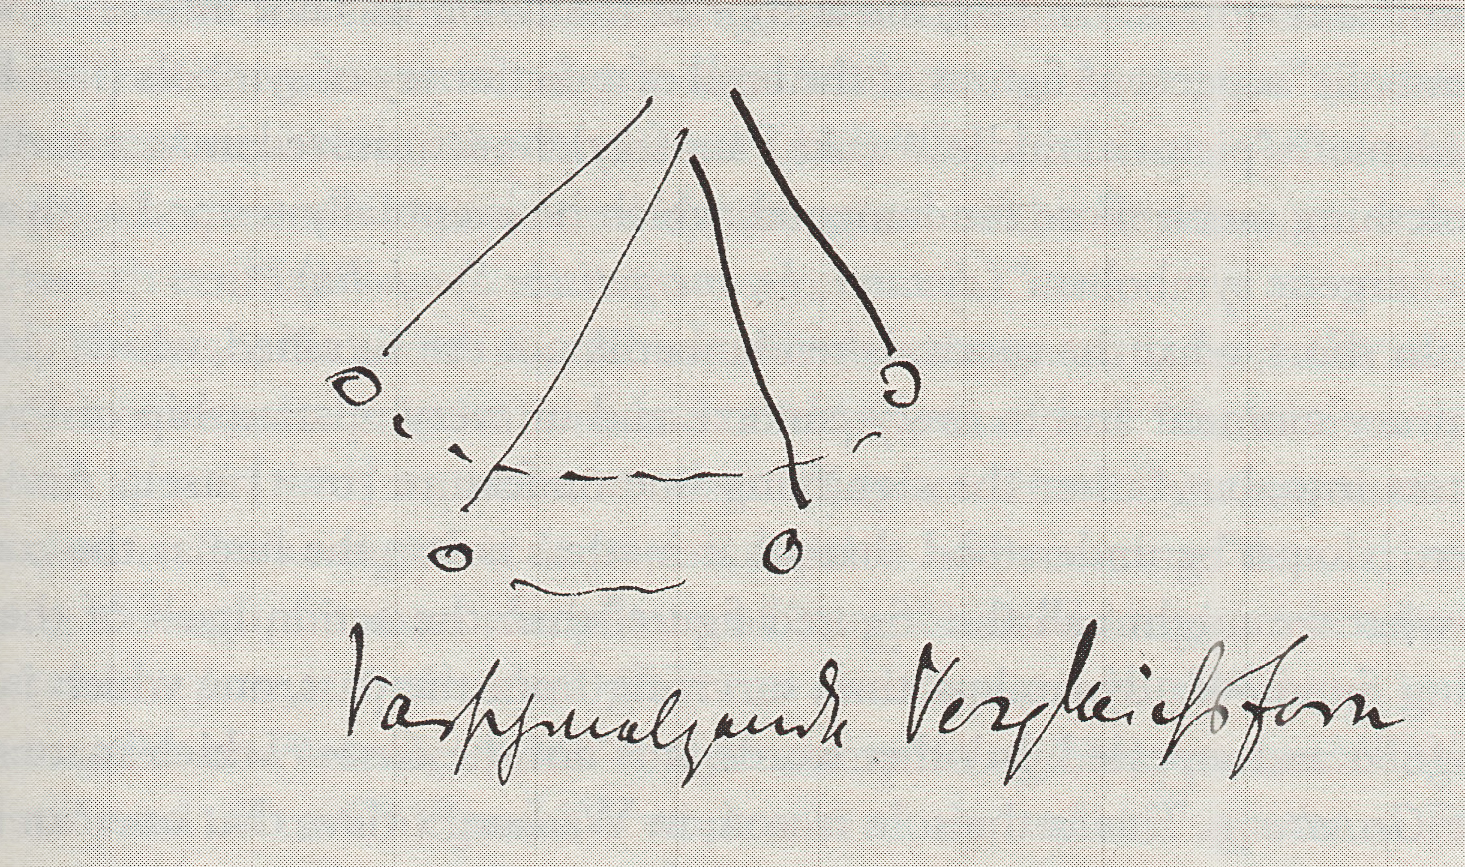 Verschmelzende Vergleichsform